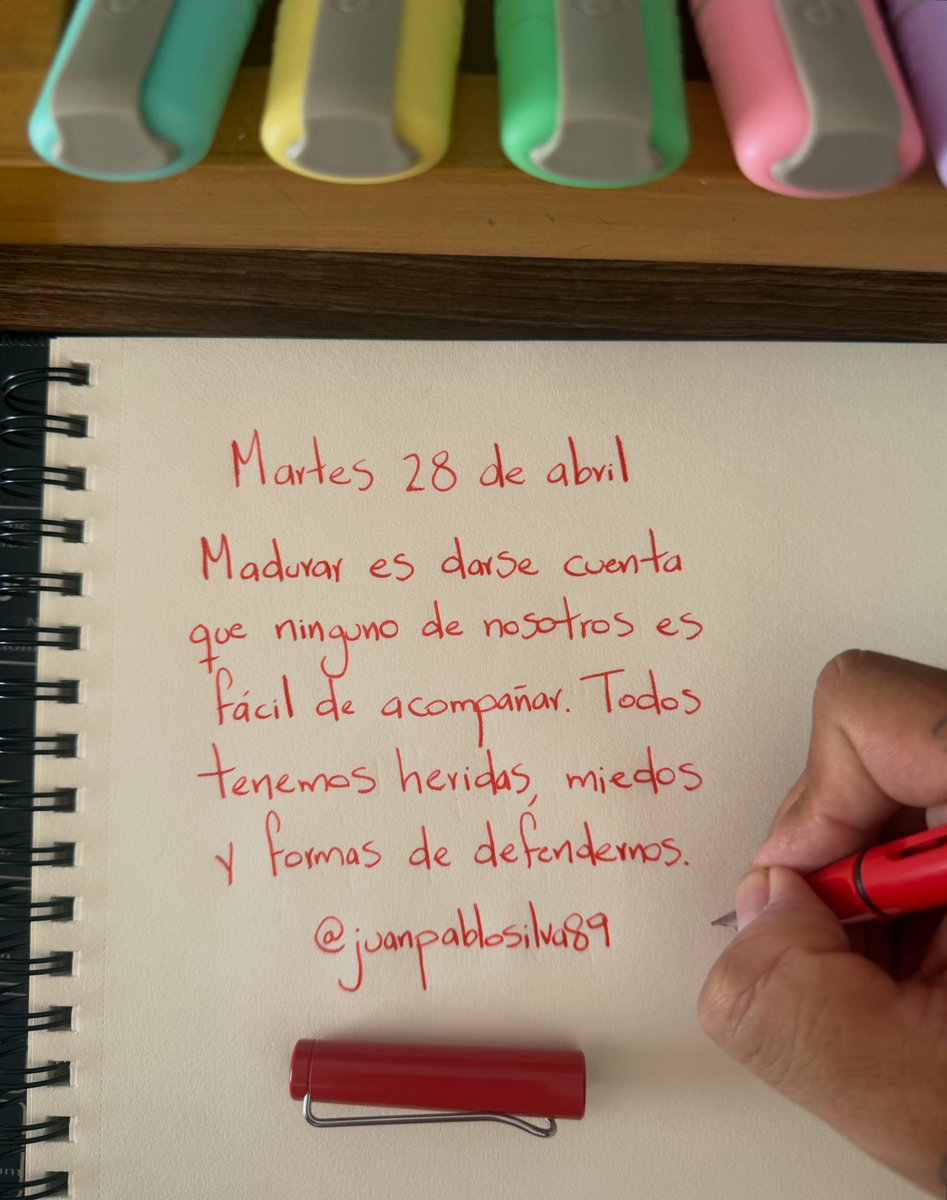 Martes 28 de abril
Madurar es darse cuenta
que ninguno de nosotros es
fácil de acompañar. Todos
tenemos heridas, miedos
y formas de defendernos.
@juanpablosilva89